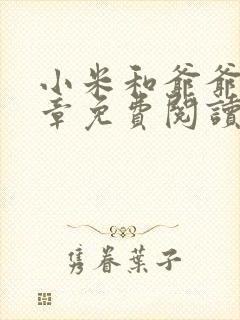 小米和爺爺
章免費閱讀
隽眷葉子